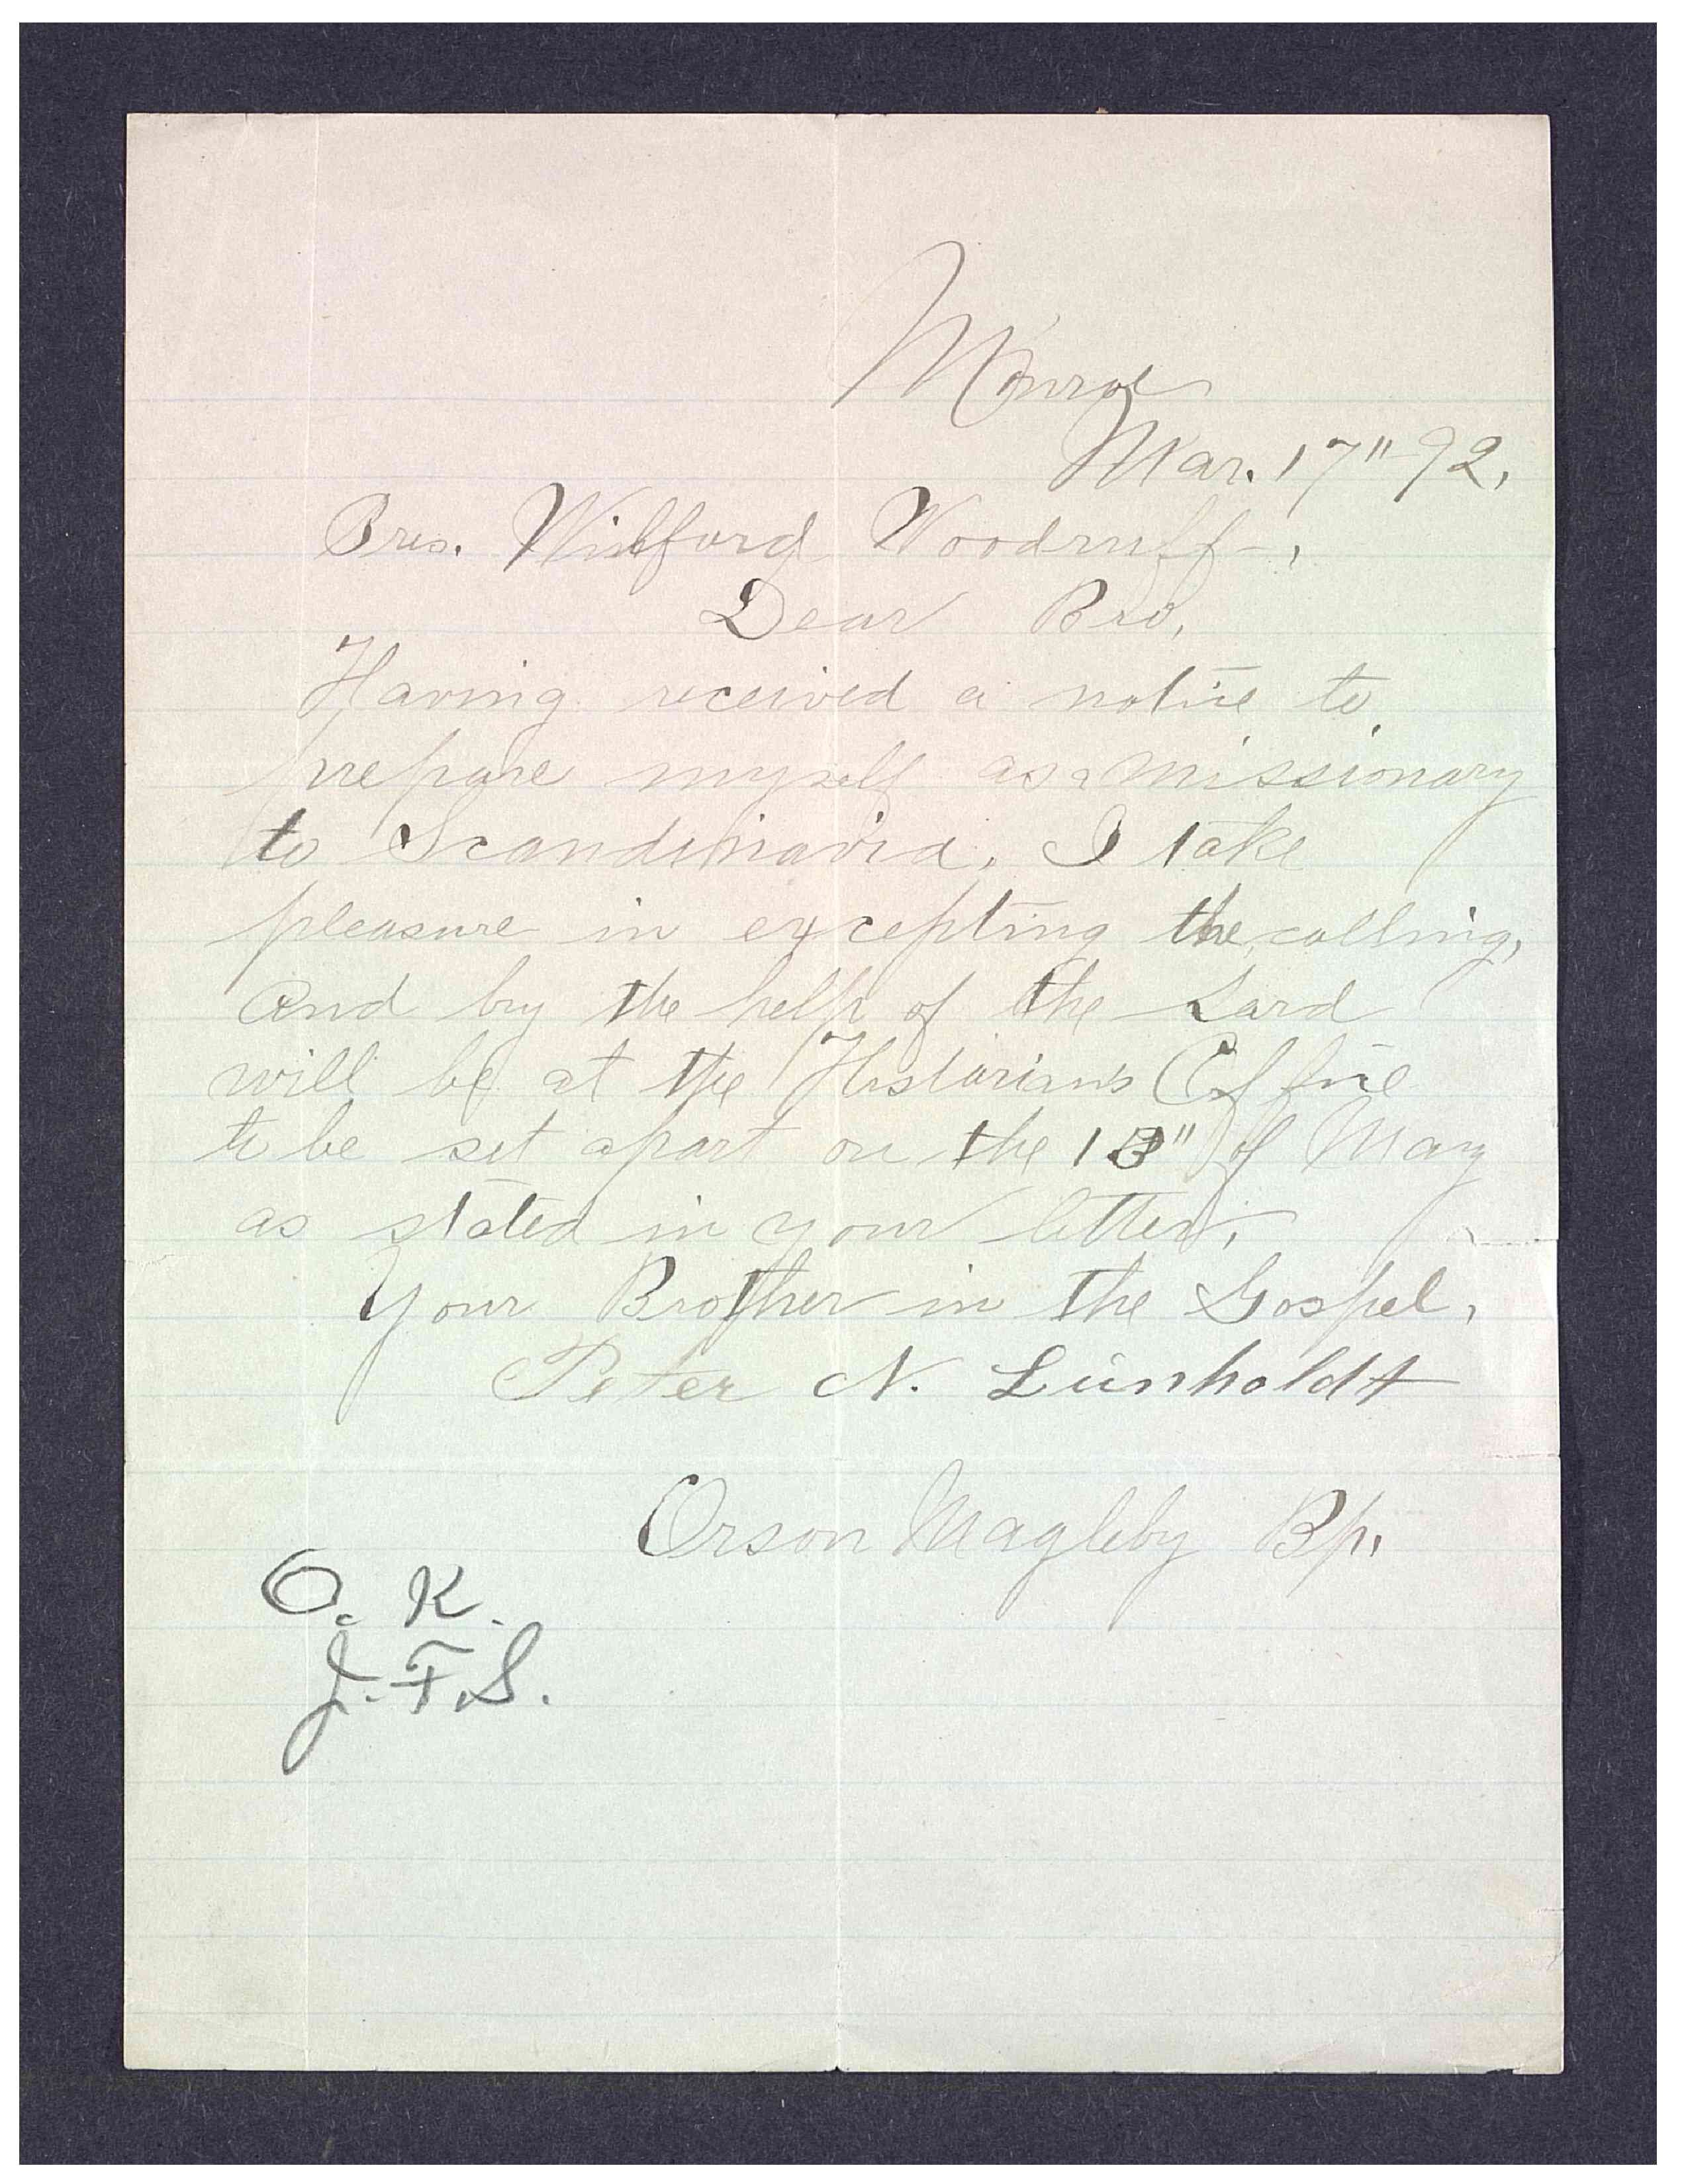 Monroe
Mar. 17" 92.
Pres. Wilford Woodruff,
Dear Bro,
Having received a notice to
prepare myself as a missionary
to Scandinavia, I take
pleasure in excepting the calling,
and by the help of the Lord
will be at the Historian's Office
to be set apart on the 13" of May
as stated in your letter.
Your Brother in the Gospel,
Peter N. Lünholdt
Orson Magleby Bp.
O. K.
J. F. S.